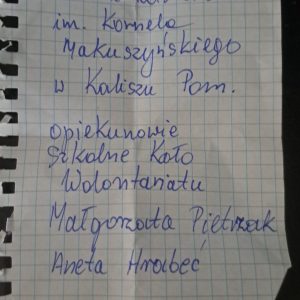 im. Kornela
Makuszyńskiego
w Kaliszu Pom.
opiekunowie
Szkolne Koło
Wolontariatu
Małgorzata Pietrzak
Aneta Hrabeć